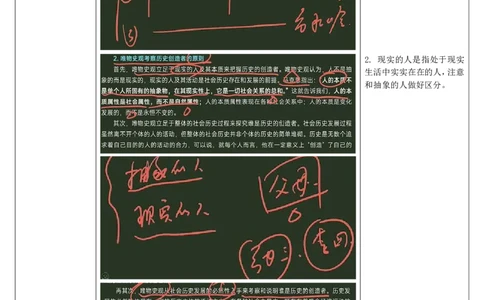 2. 唯物史观考察历史创造者的原则
首先，唯物史观立足于现实的人及其本质来把握历史的创造者。唯物史观认为，人不是抽
象的而是现实的，现实的人及其活动是社会历史存在和发展的前提。马克思指出：“人的本质不
是单个人所固有的抽象物，在其现实性上，它是一切社会关系的总和。”这就告诉我们，人的本
质属性是社会属性，而不是自然属性；人的本质属性表现在各种社会关系中；人的本质是变化
发展的，而不是永恒不变的。
其次，唯物史观立足于整体的社会历史过程来探究谁是历史的创造者。社会历史发展过程
虽然离不开个体的人的活动，但整体的社会历史并非个体的历史的简单堆砌。历史是无数个追
求着自己目的的人的活动的合力，可以说，就每个人而言，他在一定意义上“创造”了自己的
抽象的人
现实的人
父母
张三、李四
再其次，唯物史观从社会历史发展的必然性入手来考察和说明谁是历史的创造者。历史发
2. 现实的人是指处于现实
生活中实实在在的人，注意
和抽象的人做好区分。